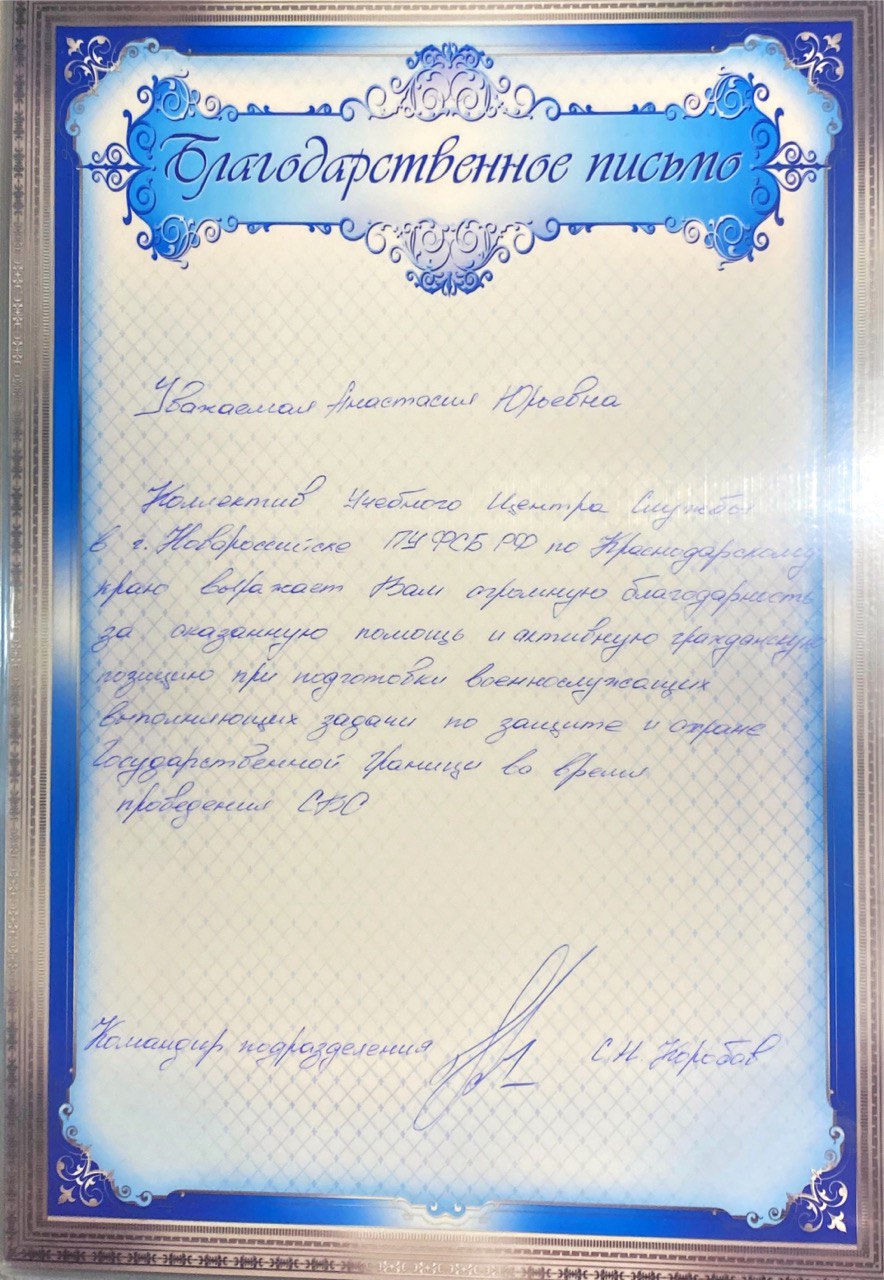 Благодарственное письмо
Уважаемая Анастасия Юрьевна
Коллектив Учебного Центра Службы
в г. Новороссийске ПУ ФСБ РФ по Краснодарскому
краю выражает Вам огромную благодарность
за оказанную помощь и активную гражданскую
позицию при подготовки военнослужащих
выполняющих задачи по защите и охране
Государственной границы во время
проведения СВО
Командир подразделения С.Н. Коробов